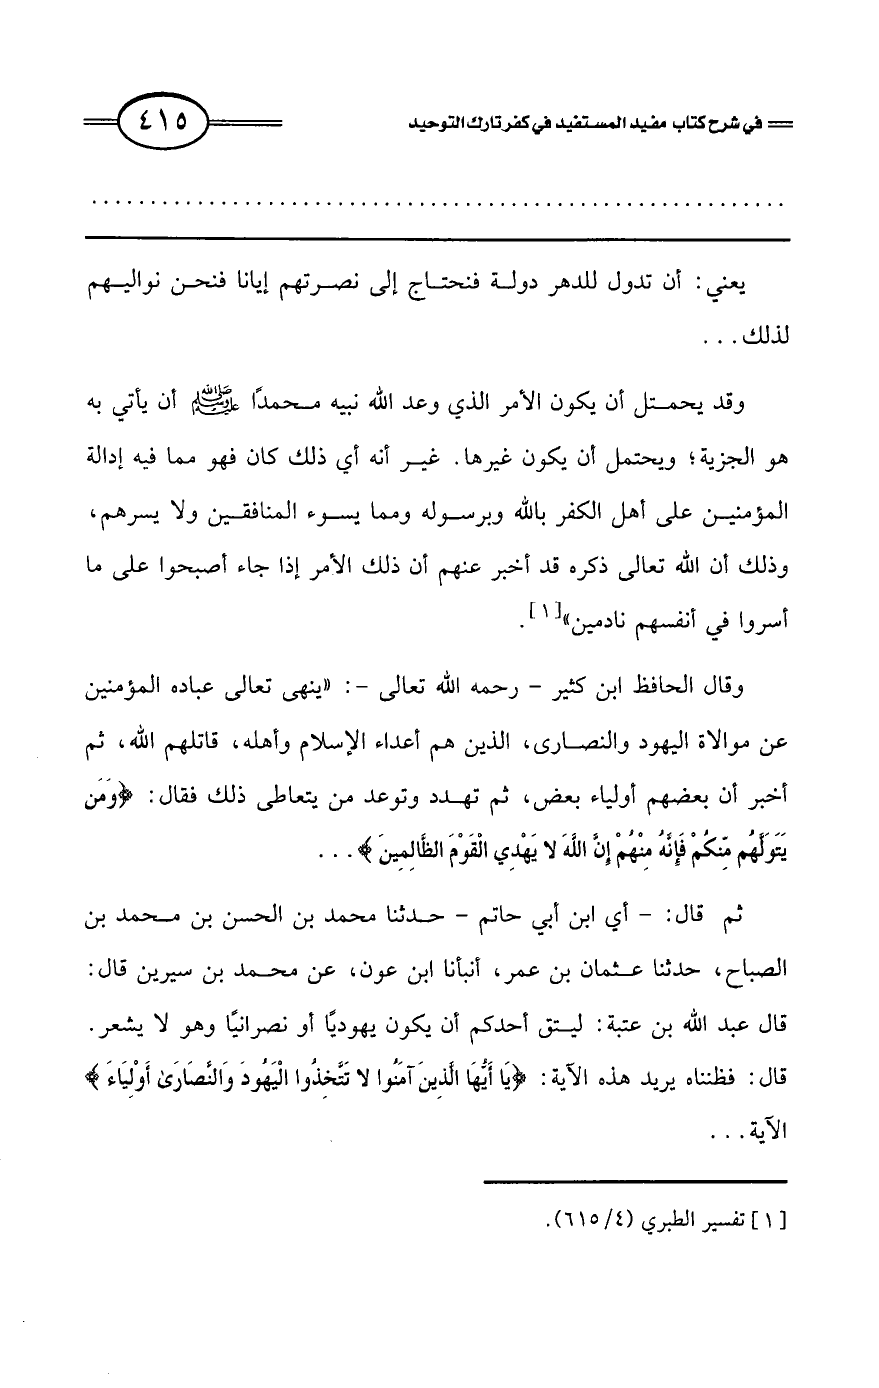 في شرح كتاب مفيد المستفيد في كفر تارك التوحيد
٤١٥
يعني: أن تدول للدهر دولة فنحتاج إلى نصرتهم إيانا فنحن نواليهم
لذلك...
وقد يحمتل أن يكون الأمر الذي وعد الله نبيه محمدًا ﷺ أن يأتي به
هو الجزية؛ ويحتمل أن يكون غيرها. غير أنه أي ذلك كان فهو مما فيه إدالة
المؤمنين على أهل الكفر بالله وبرسوله ومما يسوء المنافقين ولا يسرهم،
وذلك أن الله تعالى ذكره قد أخبر عنهم أن ذلك الأمر إذا جاء أصبحوا على ما
أسروا في أنفسهم نادمين»[١].
وقال الحافظ ابن كثير - رحمه الله تعالى -: «ينهى تعالى عباده المؤمنين
عن موالاة اليهود والنصارى، الذين هم أعداء الإسلام وأهله، قاتلهم الله، ثم
أخبر أن بعضهم أولياء بعض، ثم تهدد وتوعد من يتعاطى ذلك فقال: ﴿وَمَن
يَتَوَلَّهُم مِّنكُمْ فَإِنَّهُ مِنْهُمْ إِنَّ اللَّهَ لا يَهْدِي الْقَوْمَ الظَّالِمِينَ﴾...
ثم قال: - أي ابن أبي حاتم - حدثنا محمد بن الحسن بن محمد بن
الصباح، حدثنا عثمان بن عمر، أنبأنا ابن عون، عن محمد بن سيرين قال:
قال عبد الله بن عتبة: ليتق أحدكم أن يكون يهوديًا أو نصرانيًا وهو لا يشعر.
قال: فظنناه يريد هذه الآية: ﴿يَا أَيُّهَا الَّذِينَ آمَنُوا لا تَتَّخِذُوا الْيَهُودَ وَالنَّصَارَىٰ أَوْلِيَاءَ﴾
الآية...
[١] تفسير الطبري (٤/ ٦١٥).